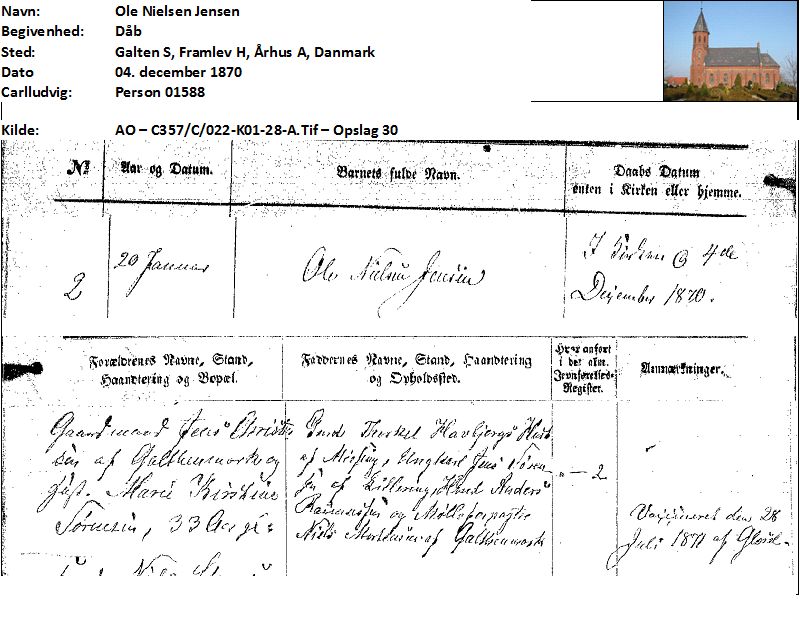 Navn: Ole Nielsen Jensen
Begivenhed: Dåb
Sted: Galten S, Framlev H, Århus A, Danmark
Dato 04. december 1870
Carlludvig: Person 01588
Kilde: AO – C357/C/022-K01-28-A.Tif – Opslag 30
№ Aar og Datum. Barnets fulde Navn. Daabs Datum
enten i Kirken eller hjemme.
2 20 Januar Ole Nielsen Jensen I Kirken 4de
December 1870.
Forældrenes Navne, Stand,
Haandtering og Bopæl.
Faddernes Navne, Stand, Haandtering
og Opholdssted.
Hvor anført
i det alm.
Jevnførelses-
Register.
Anmærkninger.
Gaardmand Jens Christen
sen af Galthenmark og
Hust. Marie Kirstine
Sørensen, 33 Aar
Gmd. Terkel Havbjergs Hust.
af Ungkarl Jens Søren
sen af Hmd. Anders
Rasmussen og Mølleforpagter
Niels Mortensen af Galthenmark
2
Vaccineret den 28
Juli 1871 af